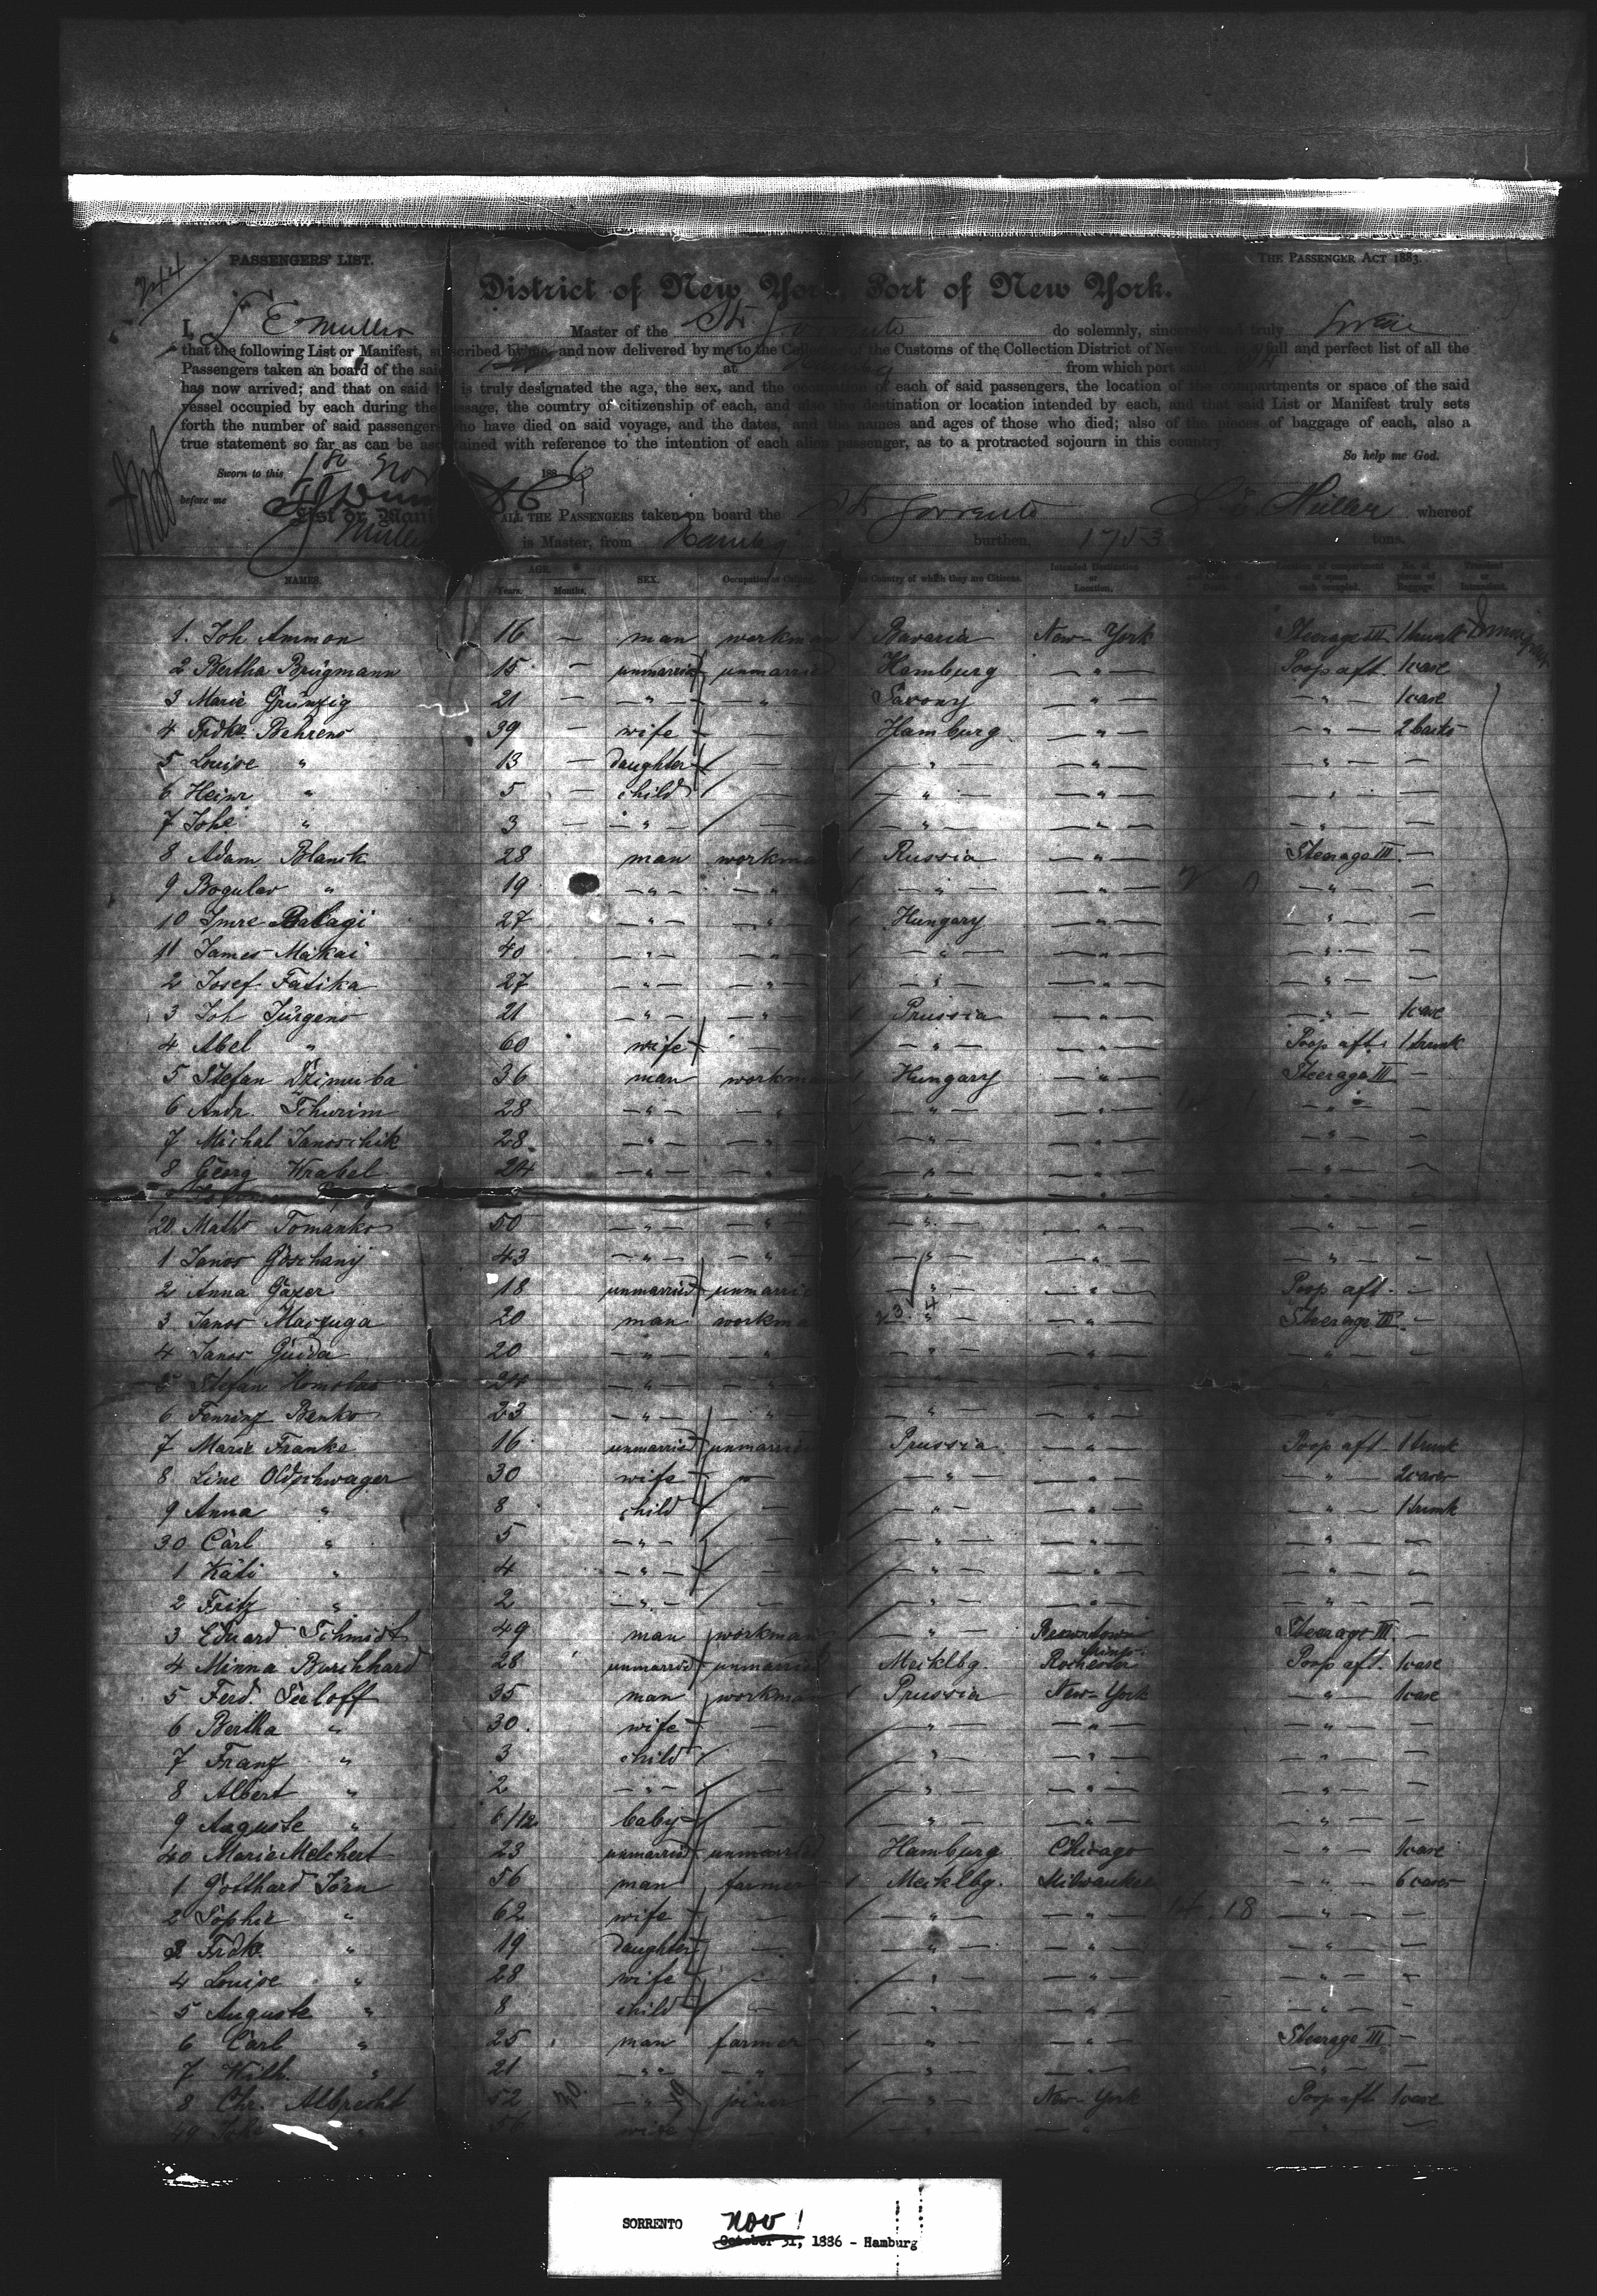 244
PASSENGERS' LIST.
THE PASSENGER ACT 1883.
District of New York, Port of New York.
I, L E Muller Master of the Str Sorrento do solemnly, sincerely and truly swear
that the following List or Manifest, subscribed by me, and now delivered by me to the Collector of the Customs of the Collection District of New York, full and perfect list of all the
Passengers taken an board of the said Str at Hamburg from which port said Str
has now arrived; and that on said is truly designated the age, the sex, and the occupation of each of said passengers, the location of the compartments or space of the said
vessel occupied by each during the passage, the country of citizenship of each, and also the destination or location intended by each, and that said List or Manifest truly sets
forth the number of said passengers who have died on said voyage, and the dates, and the names and ages of those who died; also of the pieces of baggage of each, also a
true statement so far as can be ascertained with reference to the intention of each alien passenger, as to a protracted sojourn in this country.
So help me God.
Sworn to this 1st Nov 1886
before me
List or Manifest ALL THE PASSENGERS taken on board the Str Sorrento Müller whereof
Muller is Master, from Hamburg burthen, 1753 tons.
NAMES. AGE. Years. Months. SEX. Occupation or Calling. The Country of which they are Citizens. Intended Destination or Location. Location of compartment or space each occupied. No. of pieces of Baggage. Transient or
1. Joh. Ammon 16 — man workman 1 Bavaria New-York Steerage III 1 trunk
2 Bertha Brügmann 15 — unmarried unmarried Hamburg — " — Poop aft. 1 case
3 Marie Grünzig 21 — — " — — " — Saxony — " — — " — 1 case
4 Frdke Behrens 39 — wife — Hamburg — " — — " —
5 Louise " 13 — daughter — — " — — " — — " — —
6 Heinr " 5 — child — — " — — " — — " — —
7 Johs " 3 — — " — — — " — — " — — " — —
8 Adam Blansk 28 man workman 1 Russia — " — Steerage III. —
9 Boguslav " 19 — " — — " — — " — — " — — " — —
10 Imre Balagi 27 — " — — " — Hungary — " — — " — —
11 James Makai 40 — " — — " — — " — — " — — " — —
2 Josef Fatika 27 — " — — " — — " — — " — — " — —
3 Joh Jürgens 21 — " — — " — Prussia — " — — " — 1 case
4 Abel " 60 wife — — " — — " — Poop aft. 1 trunk
5 Stefan Dzimuba 36 man workman Hungary — " — Steerage III —
6 Andr. Schurim 28 — " — — " — — " — — " — — " — —
7 Michal Janoschik 28 — " — — " — — " — — " — — " — —
8 Georg Wrabel 24 — " — — " — — " — — " — — " — —
20 Maths Tomanko 50 — " — — " — — " — — " — — " — —
1 Janos Goschany 43 — " — — " — — " — — " — — " — —
2 Anna Gazer 18 unmarried unmarried — " — — " — Poop aft. —
3 Janos Maczuga 20 man workman — " — — " — Steerage III. —
4 Janos Guida 20 — " — — " — — " — — " — — " — —
5 Stefan 24 — " — — " — — " — — " — — " — —
6 Benko 23 — " — — " — — " — — " — — " — —
7 Marie Franke 16 unmarried unmarried Prussia — " — Poop aft 1 trunk
8 Line Oldschwager 30 wife — — " — — " — — " — 2 cases
9 Anna " 8 child — — " — — " — — " — 1 trunk
30 Carl " 5 — " — — — " — — " — — " — —
1 Käti " 4 — " — — — " — — " — — " — —
2 Fritz " 2 — " — — — " — — " — — " — —
3 Eduard Schmidt 49 man workman — " — Steerage III. —
4 Minna Burchhard 28 unmarried unmarried Mecklbg. Rochester Poop aft. 1 case
5 Ferd. Seeloff 35 man workman 1 Prussia New-York — " — 1 case
6 Bertha " 30. wife — — " — — " — — " — —
7 Franz " 3 child — — " — — " — — " — —
8 Albert " 2 — " — — — " — — " — — " — —
9 Auguste " 6/12 baby — — " — — " — — " — —
40 Maria Melchert 23 unmarried unmarried Hamburg Chicago — " — 1 case
1 Gotthard Törn 56 man farmer 1 Mecklbg. Milwaukee — " — 6 cases
2 Sophie " 62 wife — — " — — " — 14.18 — " — —
3 Frdke " 19 daughter — — " — — " — — " — —
4 Louise " 28 wife — — " — — " — — " — —
5 Auguste " 8 child — — " — — " — — " — —
6 Carl " 25 man farmer — " — — " — Steerage III. —
7 Wilh. " 21 — " — — " — — " — — " — — " —
8 Chr. Albrecht 52 — " — joiner — " — New-York Poop aft 1 case
49 Joh. 56 wife — " —
SORRENTO Nov 1
October 31, 1886 - Hamburg